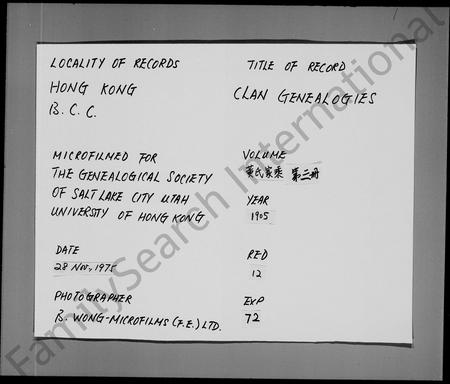 LOCALITY OF RECORDS
HONG KONG
B.C.C.
TITLE OF RECORD
CLAN GENEALOGIES
MICROFILMED FOR
THE GENEALOGICAL SOCIETY
OF SALT LAKE CITY UTAH
UNIVERSITY OF HONG KONG
VOLUME
氏家乘 第三冊
YEAR
1905
DATE
28 NOV., 1975
RED
12
PHOTOGRAPHER
B. WONG-MICROFILMS (F.E.) LTD.
EXP
72
FamilySearch International